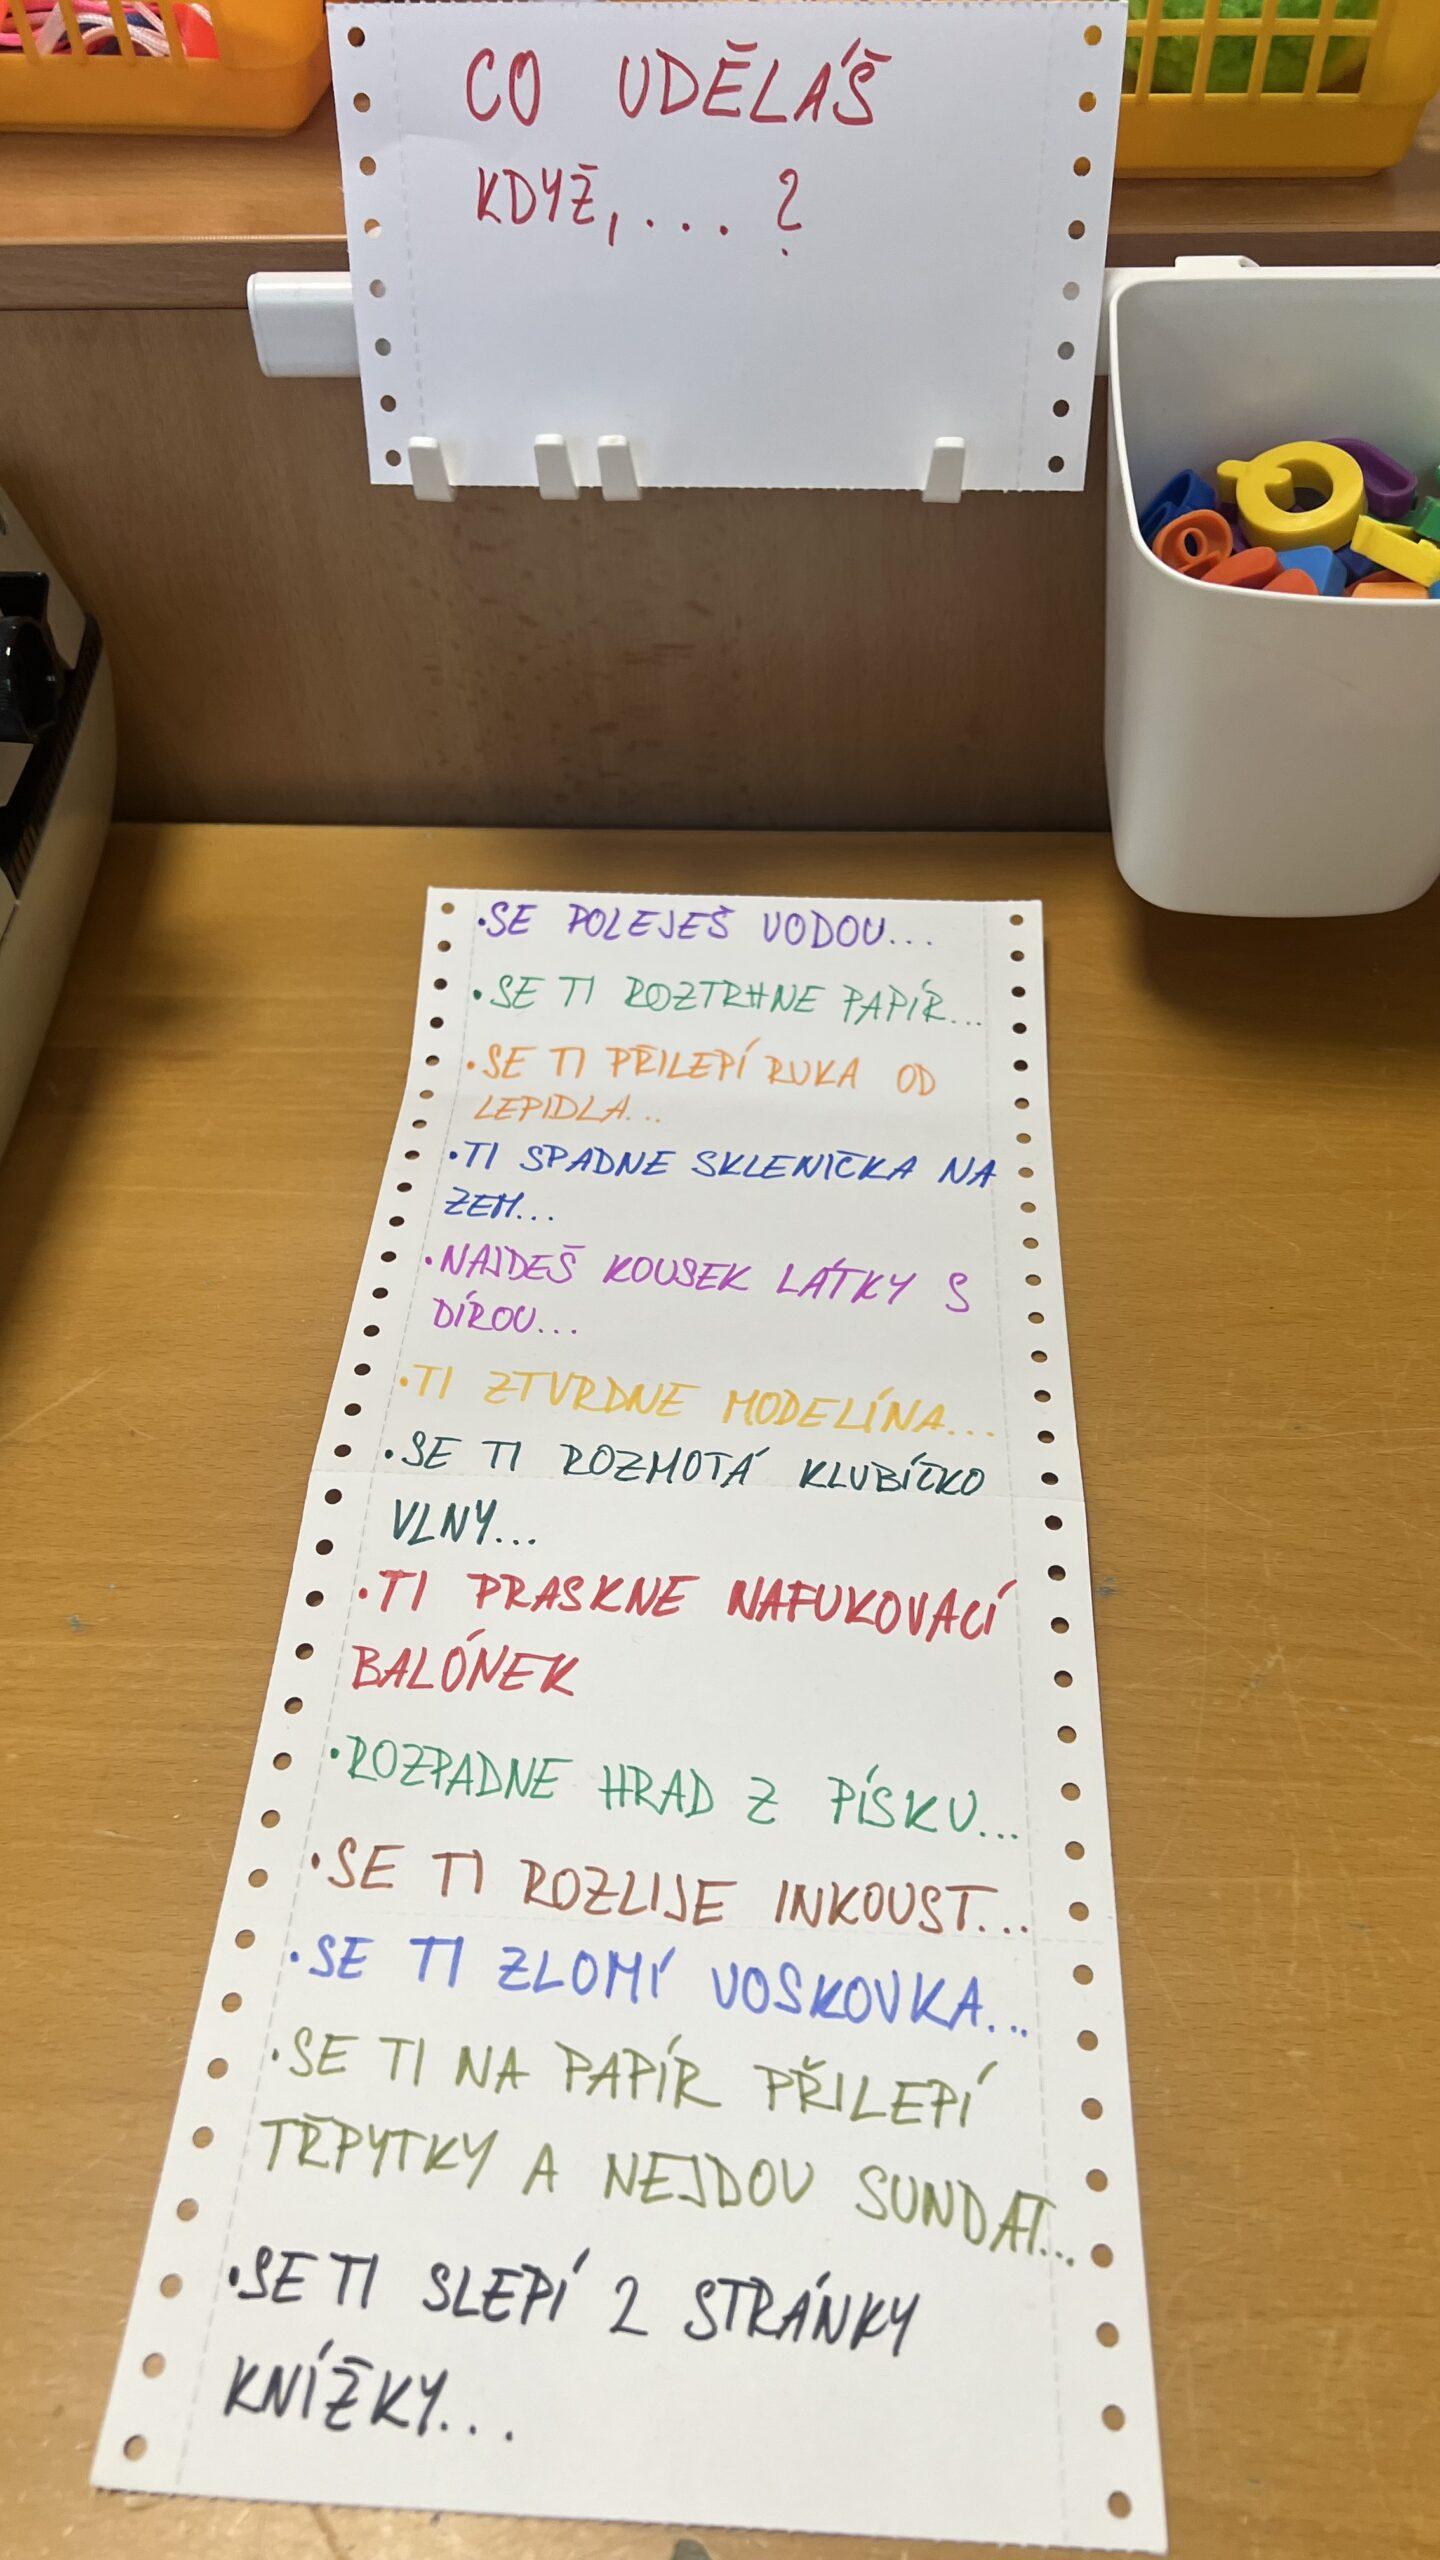 CO UDĚLÁŠ
KDYŽ,... ?
•SE POLEJEŠ VODOU...
•SE TI ROZTRHNE PAPÍR...
•SE TI PŘILEPÍ RUKA OD
LEPIDLA...
•TI SPADNE SKLENIČKA NA
ZEM...
•NAJDEŠ KOUSEK LÁTKY S
DÍROU...
•TI ZTVRDNE MODELÍNA...
•SE TI ROZMOTÁ KLUBÍČKO
VLNY...
•TI PRASKNE NAFUKOVACÍ
BALÓNEK
•ROZPADNE HRAD Z PÍSKU...
•SE TI ROZLIJE INKOUST...
•SE TI ZLOMÍ VOSKOVKA...
•SE TI NA PAPÍR PŘILEPÍ
TŘPYTKY A NEJDOU SUNDAT...
•SE TI SLEPÍ 2 STRÁNKY
KNÍŽKY...